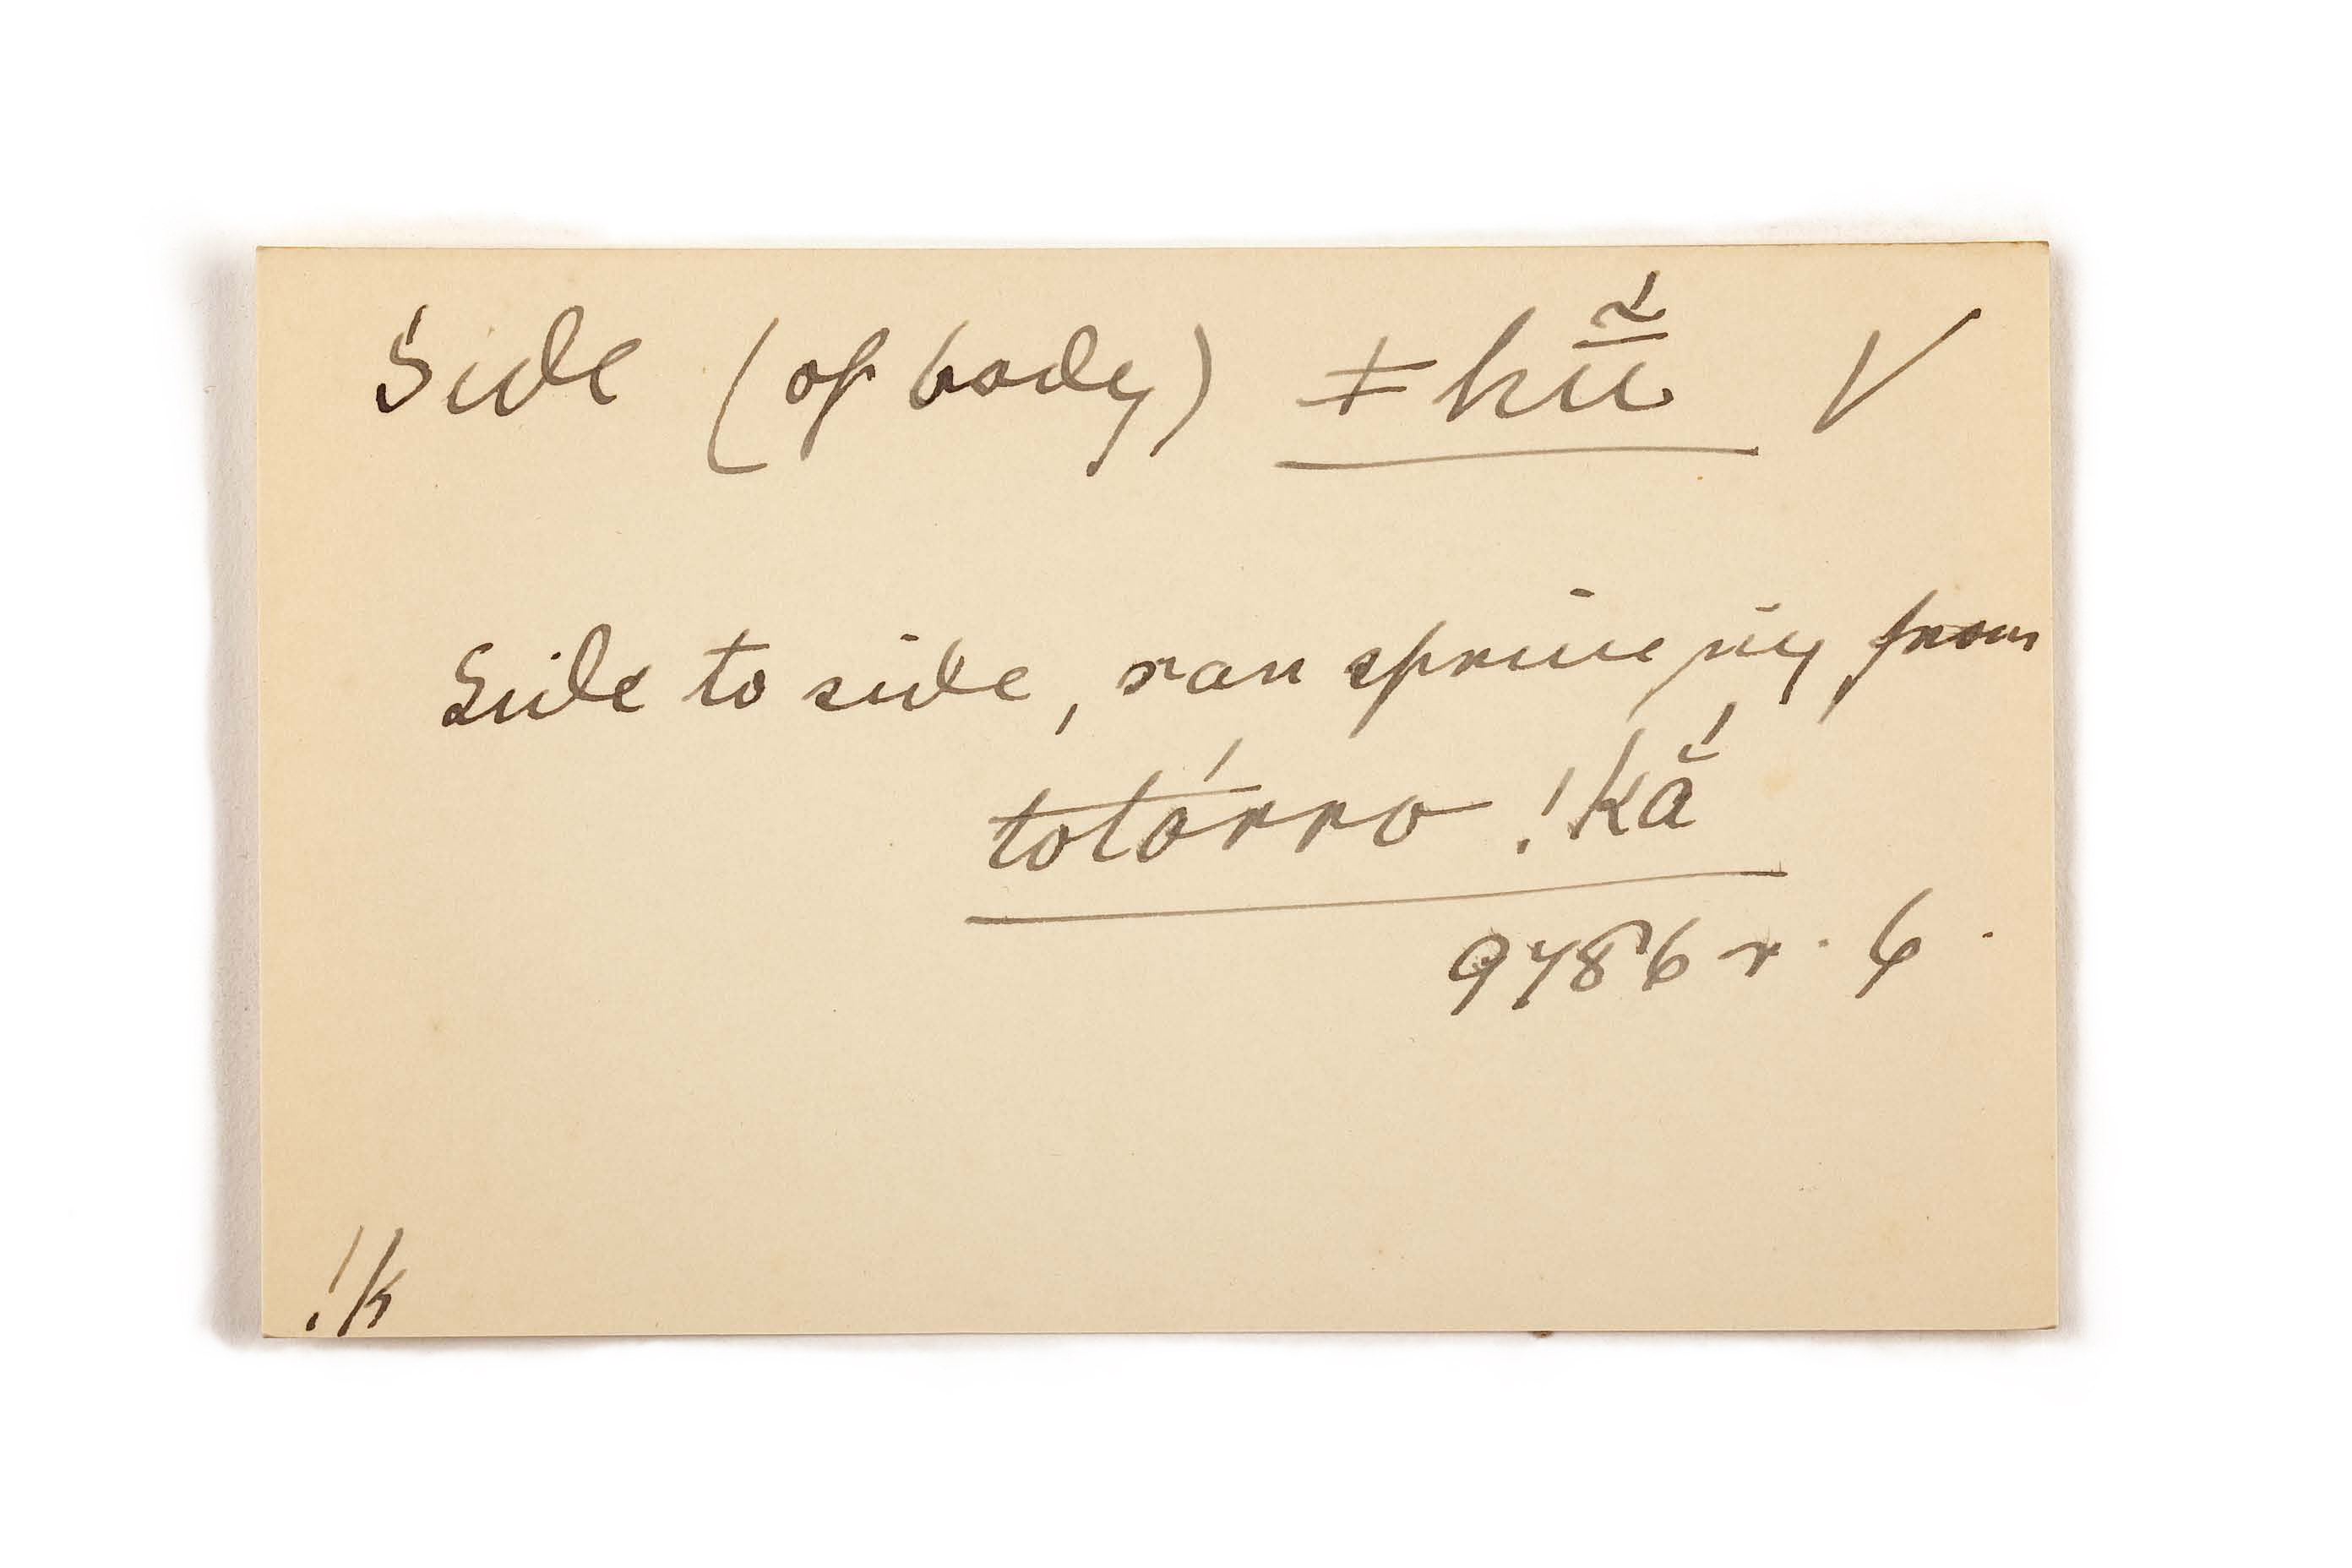 Side (of body) ǂhū̃́ V
Side to side, ran springing from
totórro !kắ
9786 r. 6.
!k